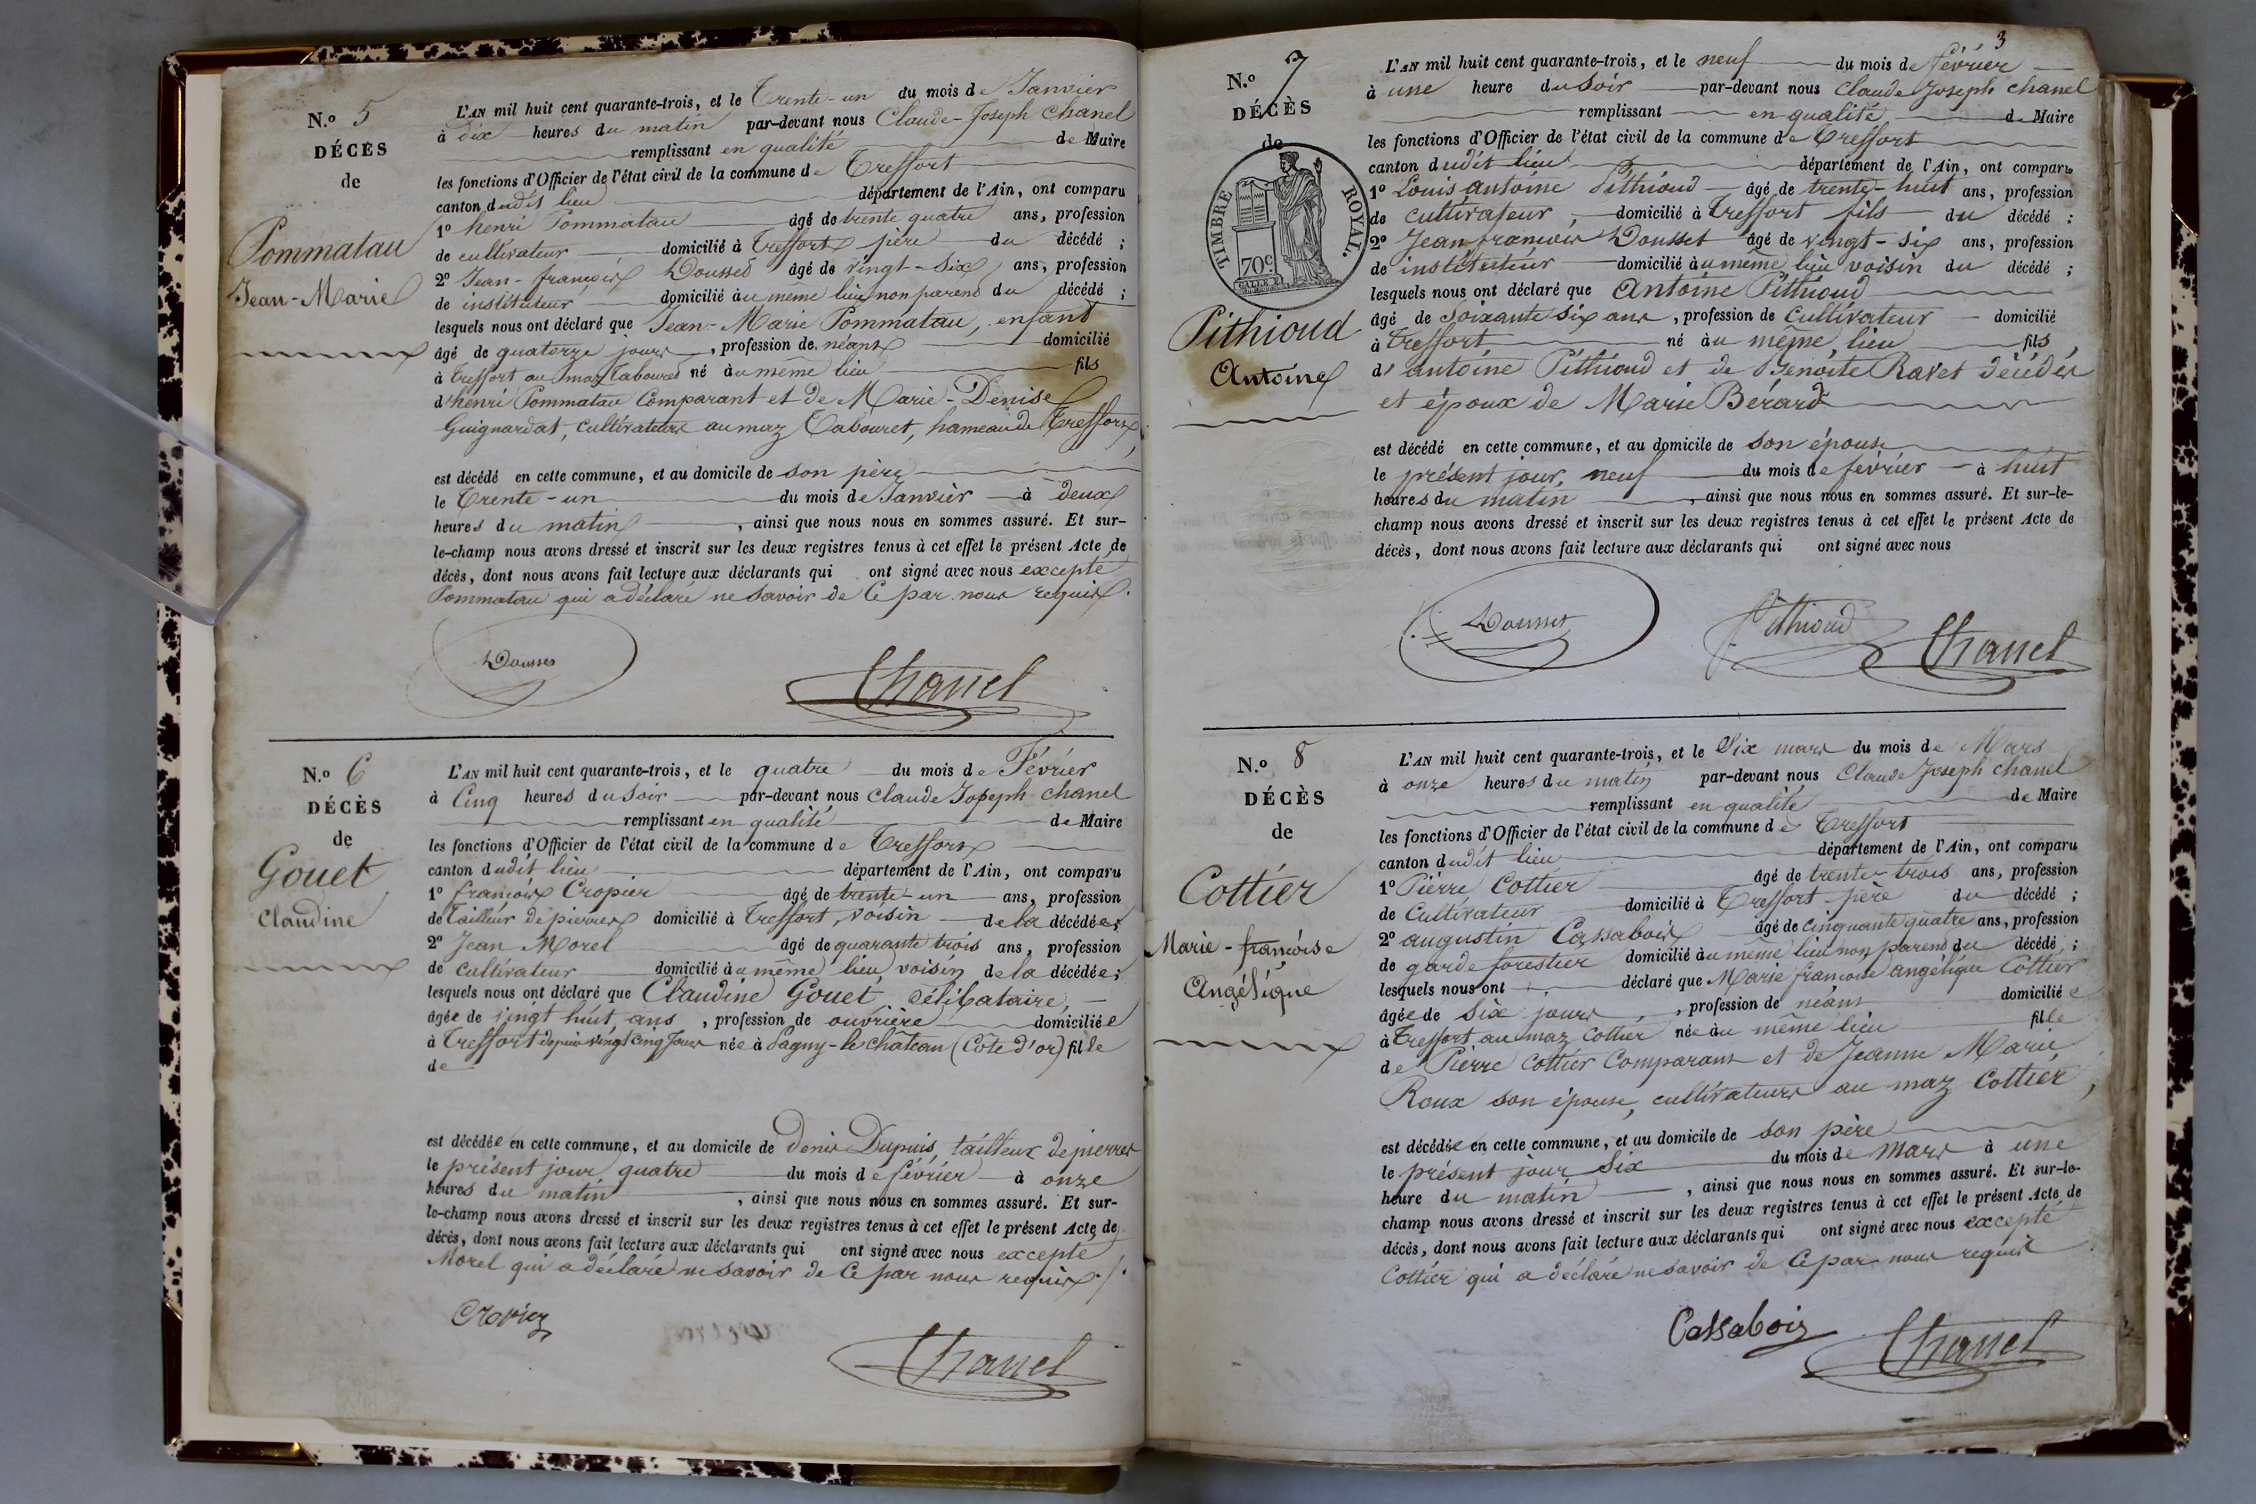 N.º 5
DÉCÈS
de
Pommatau
Jean-Marie
L'AN mil huit cent quarante-trois, et le Trente-un du mois de Janvier
à dix heures du matin par-devant nous Claude-Joseph Chanel
remplissant en qualité de Maire
les fonctions d'Officier de l'état civil de la commune de Treffort
canton dudit lieu département de l'Ain, ont comparu
1º henri Pommatau âgé de trente quatre ans, profession
de cultivateur domicilié à Treffort père du décédé ;
2º Jean-françois Dousset âgé de vingt-six ans, profession
de instituteur domicilié au même lieu non parent du décédé ;
lesquels nous ont déclaré que Jean-Marie Pommatau, enfant
âgé de quatorze jours, profession de néant domicilié
à Treffort au maz Tabouret né au même lieu fils
d'henri Pommatau Comparant et de Marie-Denise
Guignardat, cultivateurs au maz Tabouret, hameau de Treffort,
est décédé en cette commune, et au domicile de son père
le Trente-un du mois de Janvier à deux
heures du matin, ainsi que nous nous en sommes assuré. Et sur-
le-champ nous avons dressé et inscrit sur les deux registres tenus à cet effet le présent Acte de
décès, dont nous avons fait lecture aux déclarants qui ont signé avec nous excepté
Pommatau qui a déclaré ne savoir de Ce par nous requis.
Dousset
Chanel
N.º 6
DÉCÈS
de
Gouet
Claudine
L'AN mil huit cent quarante-trois, et le quatre du mois de Février
à Cinq heures du Soir par-devant nous Claude Joseph chanel
remplissant en qualité de Maire
les fonctions d'Officier de l'état civil de la commune de Treffort
canton dudit lieu département de l'Ain, ont comparu
1º françois Cropier âgé de trente-un ans, profession
de Tailleur de pierres domicilié à Treffort, voisin de la décédée;
2º Jean Morel âgé de quarante trois ans, profession
de cultivateur domicilié au même lieu voisin de la décédée;
lesquels nous ont déclaré que Claudine Gouet célibataire,
âgée de vingt huit ans, profession de ouvrière domiciliée
à Treffort depuis vingt cinq Jours née à Pagny-le-chateau (Cote d'or) fille
de
est décédée en cette commune, et au domicile de denis Dupuis tailleur de pierres
le présent jour quatre du mois de février à onze
heures du matin, ainsi que nous nous en sommes assuré. Et sur-
le-champ nous avons dressé et inscrit sur les deux registres tenus à cet effet le présent Acte de
décès, dont nous avons fait lecture aux déclarants qui ont signé avec nous excepté
Morel qui a déclaré ne savoir de Ce par nous requis./.
Cropier
Chanel
3
N.º 7
DÉCÈS
de
TIMBRE ROYAL.
70c
Pithioud
Antoine
L'AN mil huit cent quarante-trois, et le neuf du mois de février
à une heure du Soir par-devant nous Claude Joseph chanel
remplissant en qualité de Maire
les fonctions d'Officier de l'état civil de la commune de Treffort
canton dudit lieu département de l'Ain, ont comparu
1º Louis antoine Pithioud âgé de trente-huit ans, profession
de cultivateur, domicilié à Treffort fils du décédé ;
2º Jean françois Dousset âgé de vingt-six ans, profession
de instituteur domicilié au même lieu voisin du décédé ;
lesquels nous ont déclaré que Antoine Pithioud
âgé de soixante six ans, profession de Cultivateur domicilié
à Treffort né au même lieu fils
d'antoine Pithioud et de Benoîte Ravet décédés
et époux de Marie Bérard
est décédé en cette commune, et au domicile de son épouse
le présent jour, neuf du mois de février à huit
heures du matin, ainsi que nous nous en sommes assuré. Et sur-le-
champ nous avons dressé et inscrit sur les deux registres tenus à cet effet le présent Acte de
décès, dont nous avons fait lecture aux déclarants qui ont signé avec nous
Dousset
Pithioud
Chanel
N.º 8
DÉCÈS
de
Cottier
Marie-françoise
Angélique
L'AN mil huit cent quarante-trois, et le Six mars du mois de Mars
à onze heures du matin par-devant nous Claude Joseph chanel
remplissant en qualité de Maire
les fonctions d'Officier de l'état civil de la commune de Treffort
canton dudit lieu département de l'Ain, ont comparu
1º Pierre Cottier âgé de trente-trois ans, profession
de Cultivateur domicilié à Treffort père du décédé ;
2º augustin Cassabois âgé de cinquante quatre ans, profession
de garde forestier domicilié au même lieu non parent du décédé ;
lesquels nous ont déclaré que Marie françoise angélique Cottier
âgée de Six jours, profession de néant domiciliée
à Treffort au maz Cottier née au même lieu fille
de Pierre Cottier Comparant et de Jeanne Marie
Roux son épouse, cultivateurs au maz Cottier,
est décédée en cette commune, et au domicile de son père
le présent jour Six du mois de Mars à une
heure du matin, ainsi que nous nous en sommes assuré. Et sur-le-
champ nous avons dressé et inscrit sur les deux registres tenus à cet effet le présent Acte de
décès, dont nous avons fait lecture aux déclarants qui ont signé avec nous excepté
Cottier qui a déclaré ne savoir de Ce par nous requis
Cassabois
Chanel